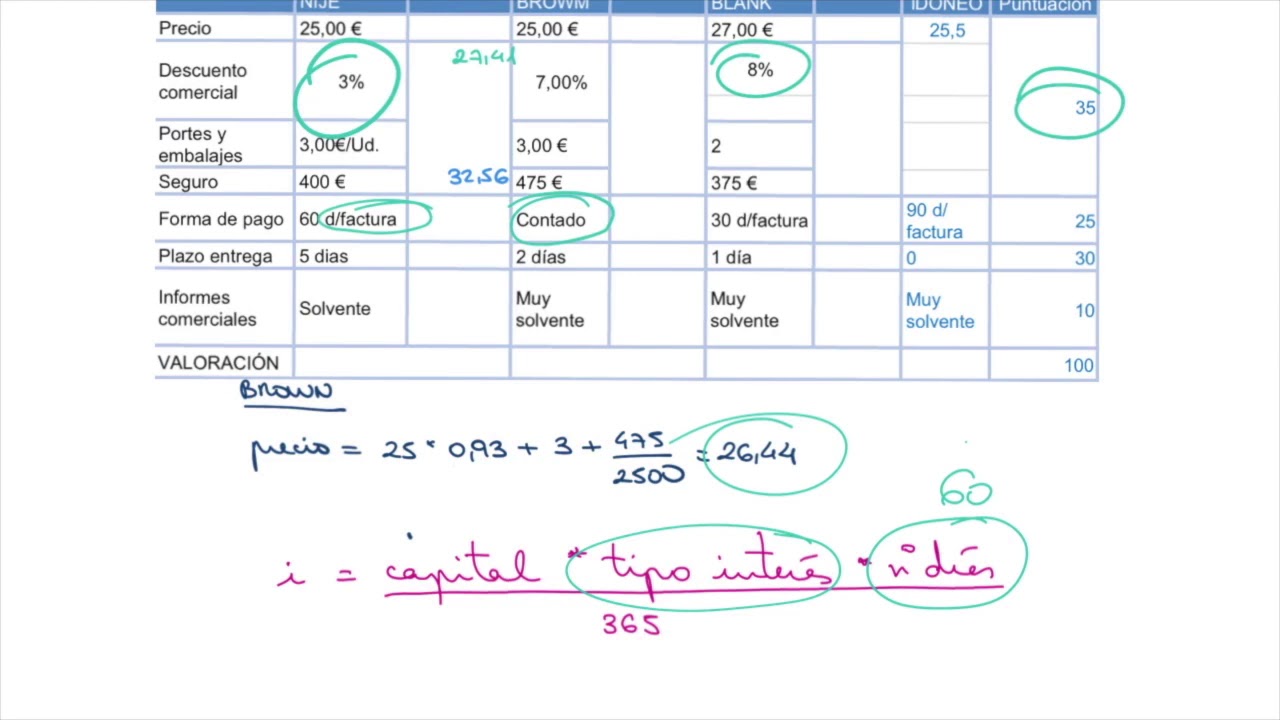 NIJE BROWM BLANK IDONEO Puntuación
Precio 25,00 € 25,00 € 27,00 € 25,5
Descuento comercial 3% 27,41 7,00% 8% 35
Portes y embalajes 3,00€/Ud. 3,00 € 2
Seguro 400 € 32,56 475 € 375 €
Forma de pago 60 d/factura Contado 30 d/factura 90 d/ factura 25
Plazo entrega 5 dias 2 días 1 día 0 30
Informes comerciales Solvente Muy solvente Muy solvente Muy solvente 10
VALORACIÓN 100
BROWN
precio = 25 * 0,93 + 3 + 475/2500 = 26,44
60
i = capital * tipo interés * nº días
365